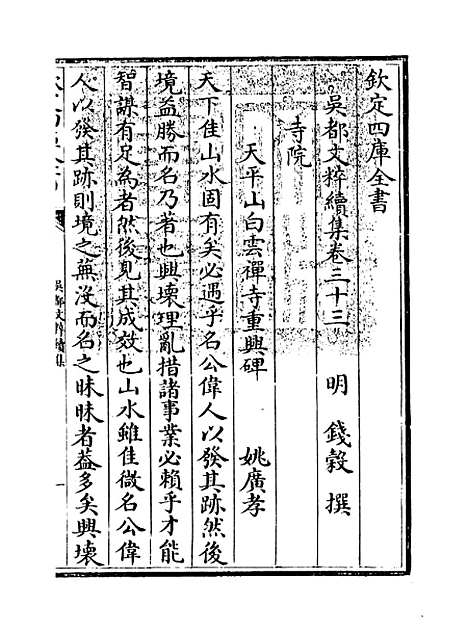 欽定四庫全書
吳都文粹續集卷三十三
明 錢榖 撰
寺院
天平山白雲禪寺重興碑 姚廣孝
天下佳山水固有矣必遇乎名公偉人以發其跡然後
境益勝而名乃著也興壞理亂措諸事業必賴乎才能
智謀有足為者然後見其成效也山水雖佳微名公偉
人以發其跡則境之蕪没而名之昧昧者葢多矣興壞
吳都文粹續集
一